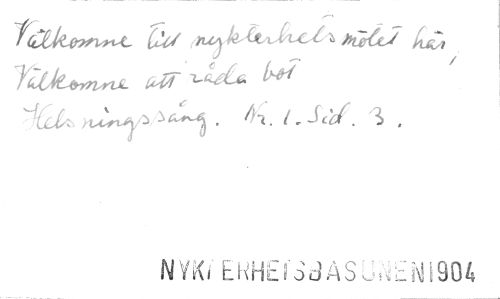 Välkomne till nykterhetsmötet här,
Välkomne att råda bot
Helsningssång. Nr. 1. Sid. 3.
NYKTERHETSBASUNEN 1904